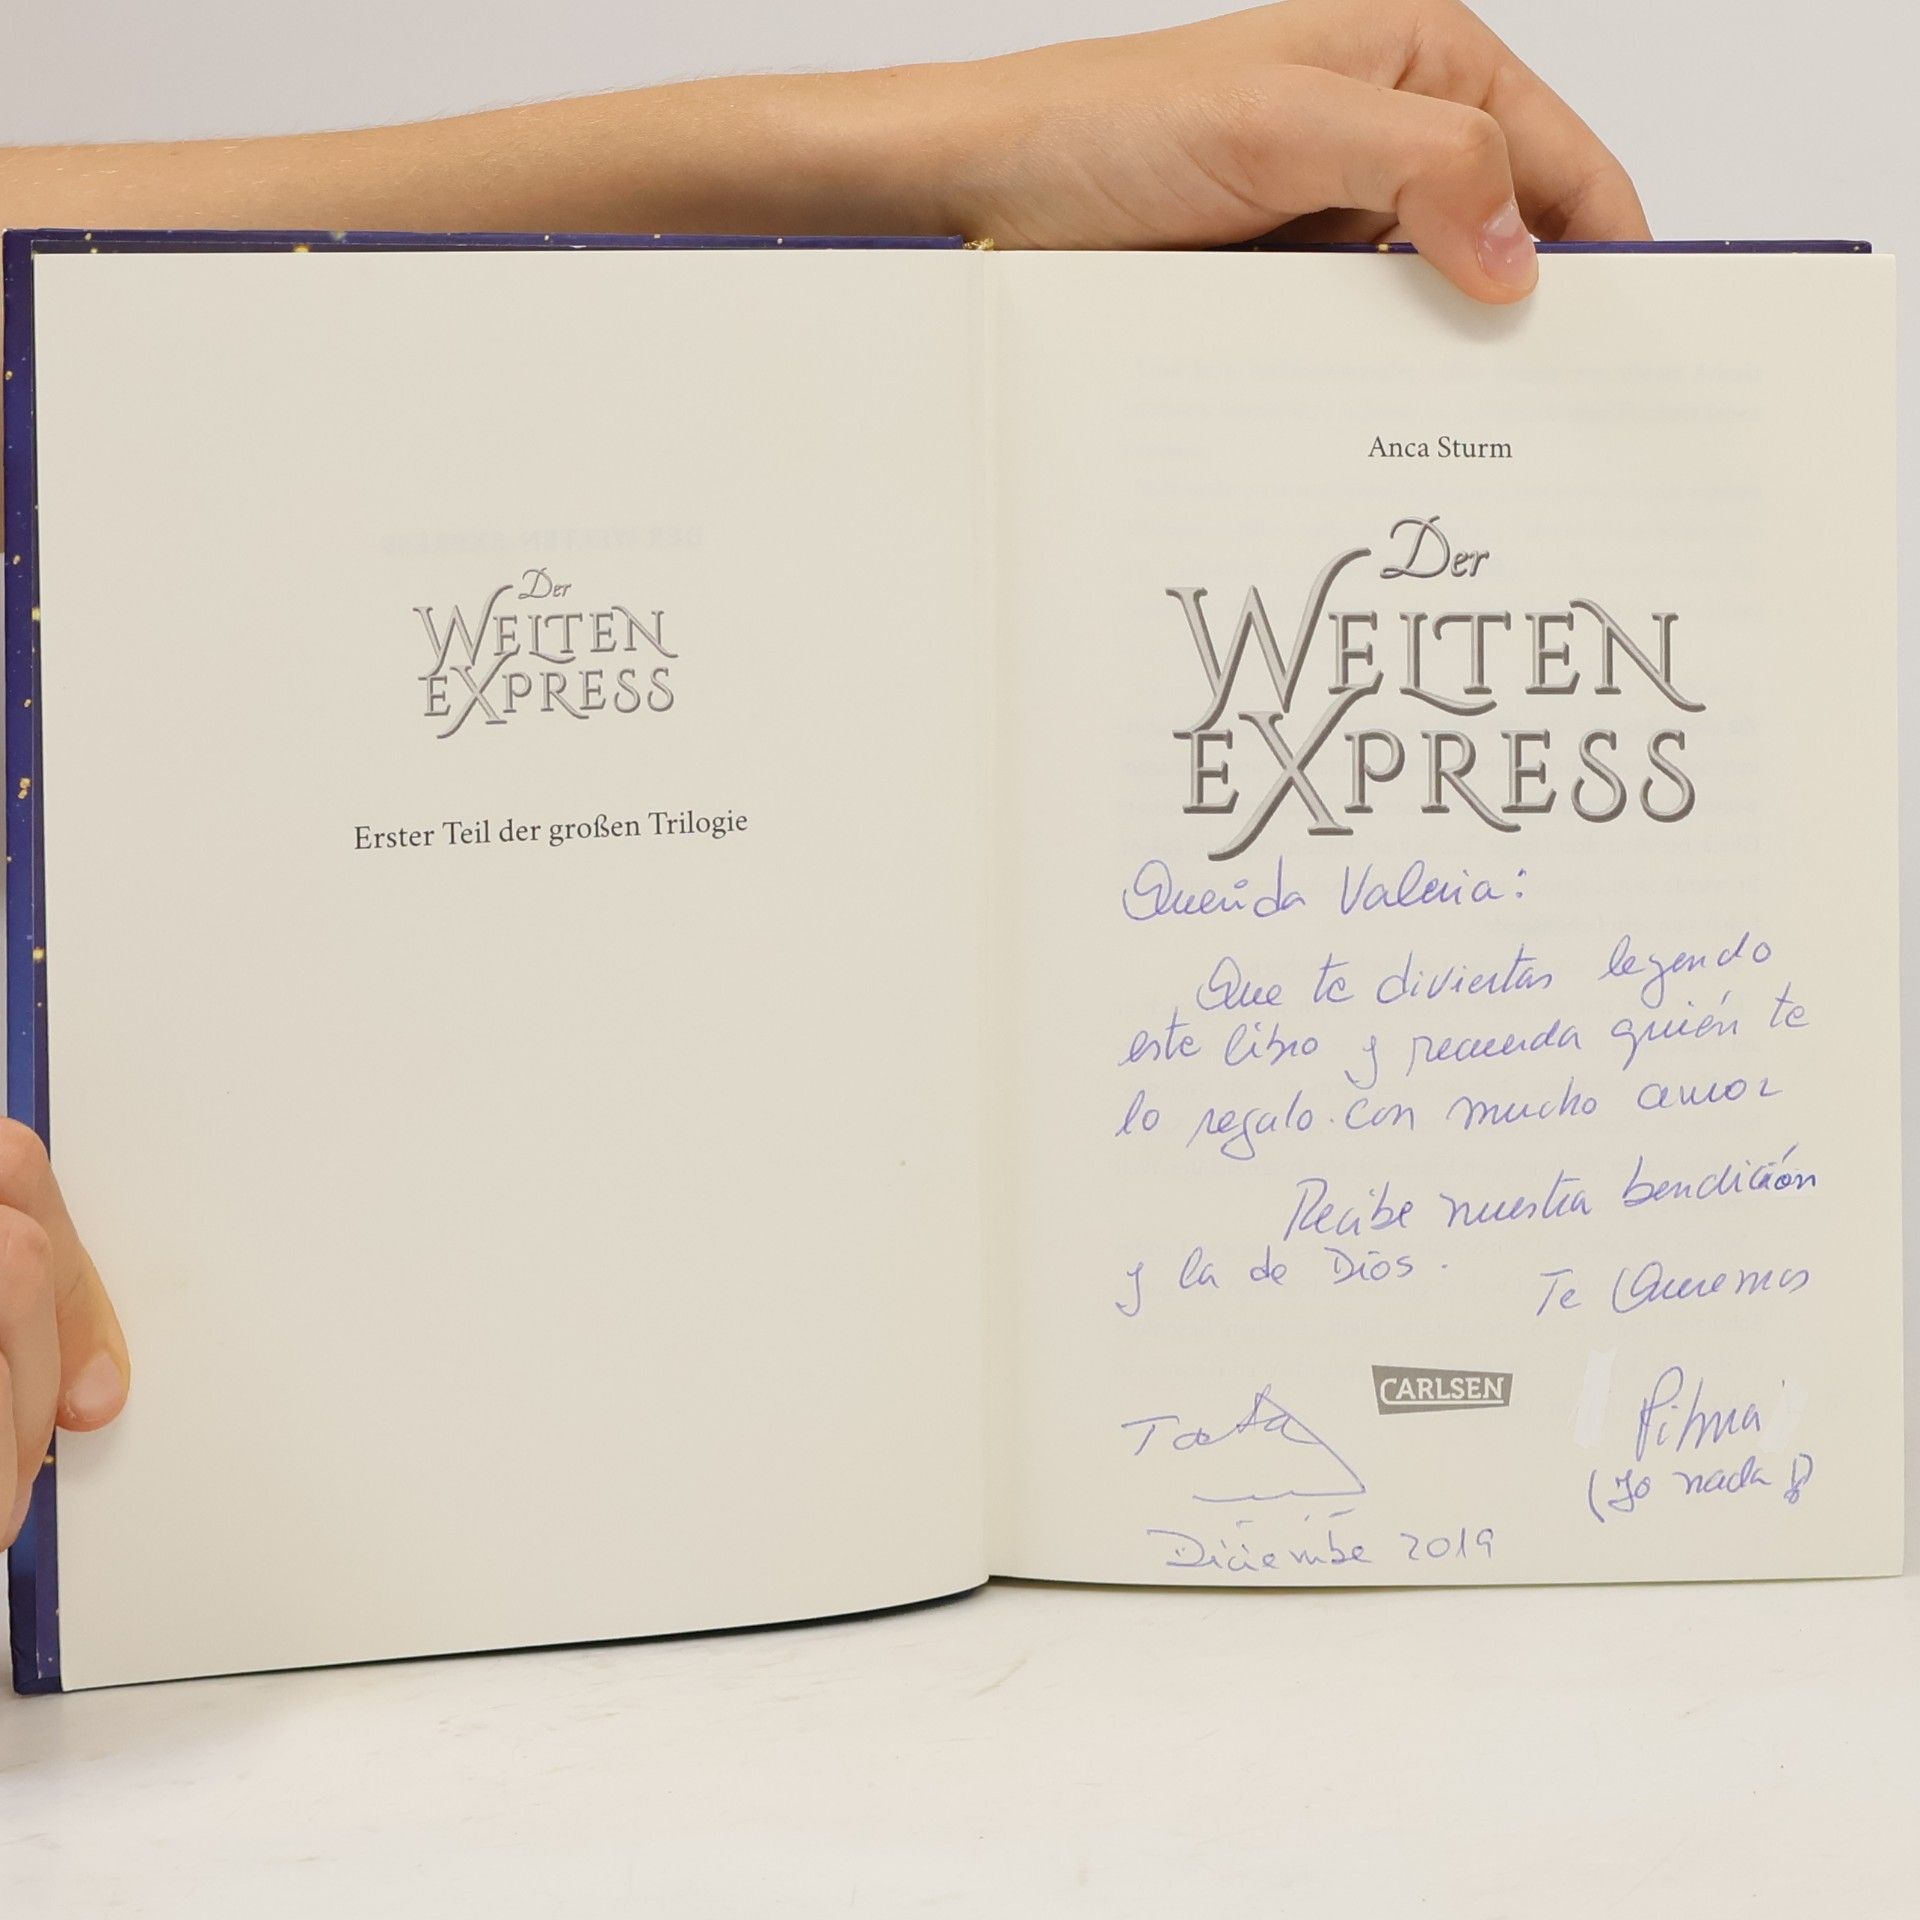 Der
WELTEN
EXPRESS
Erster Teil der großen Trilogie
Anca Sturm
Der
WELTEN
EXPRESS
Querida Valeria:
Que te diviertas leyendo
este libro y recuerda quién te
lo regalo. con mucho amor
Recibe nuestra bendición
y la de Dios.
Te Queremos
CARLSEN
Tata
(yo nada
Diciembre 2019